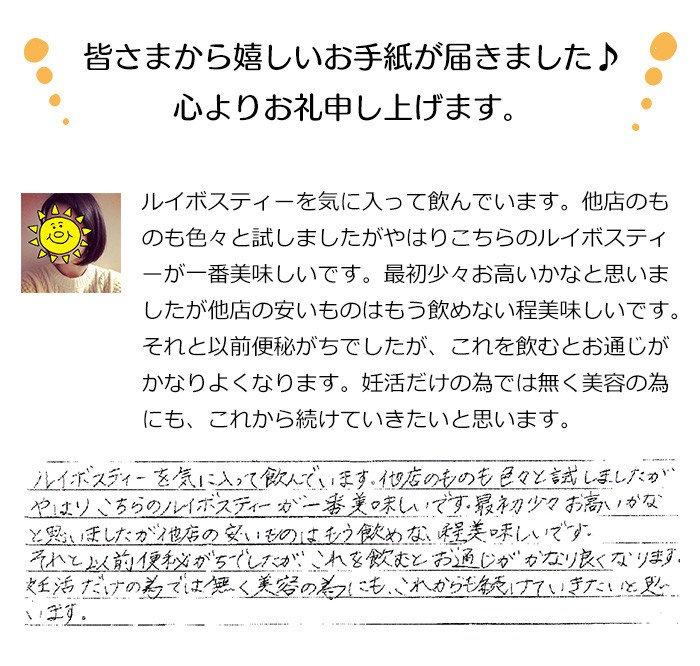 皆さまから嬉しいお手紙が届きました♪
心よりお礼申し上げます。
ルイボスティーを気に入って飲んでいます。他店のも
のも色々と試しましたがやはりこちらのルイボスティ
ーが一番美味しいです。最初少々お高いかなと思いま
したが他店の安いものはもう飲めない程美味しいです。
それと以前便秘がちでしたが、これを飲むとお通じが
かなりよくなります。妊活だけの為では無く美容の為
にも、これから続けていきたいと思います。
ルイボスティーを気に入って飲んでいます。他店のものも色々と試しましたが
やはりこちらのルイボスティーが一番美味しいです。最初少々お高いかな
と思いましたが他店の安いものはもう飲めない程美味しいです。
それと以前便秘がちでしたが、これを飲むとお通じがかなり良くなります。
妊活だけの為では無く美容の為にも、これからも続けていきたいと思
います。